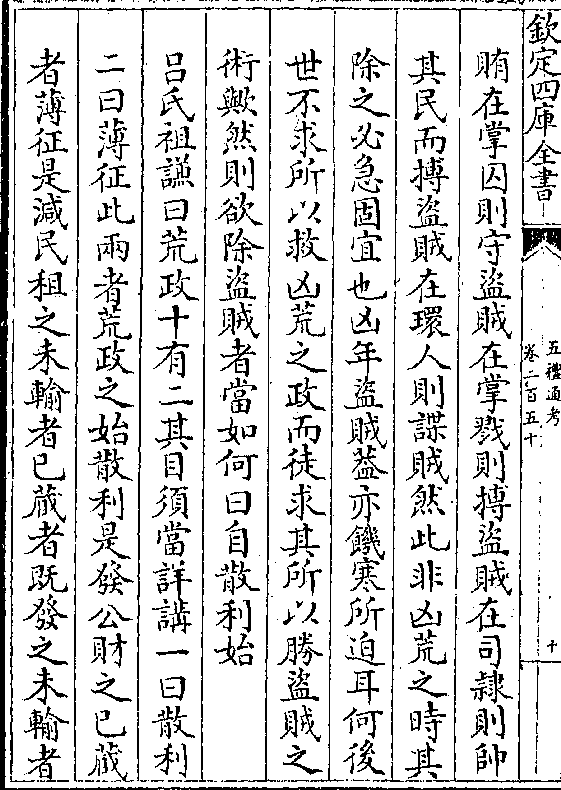 欽定四庫全書
五禮通考
卷二百五十
十
賄在掌囚則守盜賊在掌戮則搏盜賊在司隷則帥
其民而搏盜賊在環人則諜賊然此非凶荒之時其
除之必急固宜也凶年盜賊葢亦饑寒所迫耳何後
世不求所以救凶荒之政而徒求其所以勝盜賊之
術歟然則欲除盜賊者當如何曰自散利始
呂氏祖謙曰荒政十有二其目須當詳講一曰散利
二曰薄征此兩者荒政之始散利是發公財之已蔵
者薄征是減民租之未輸者已蔵者既發之未輸者